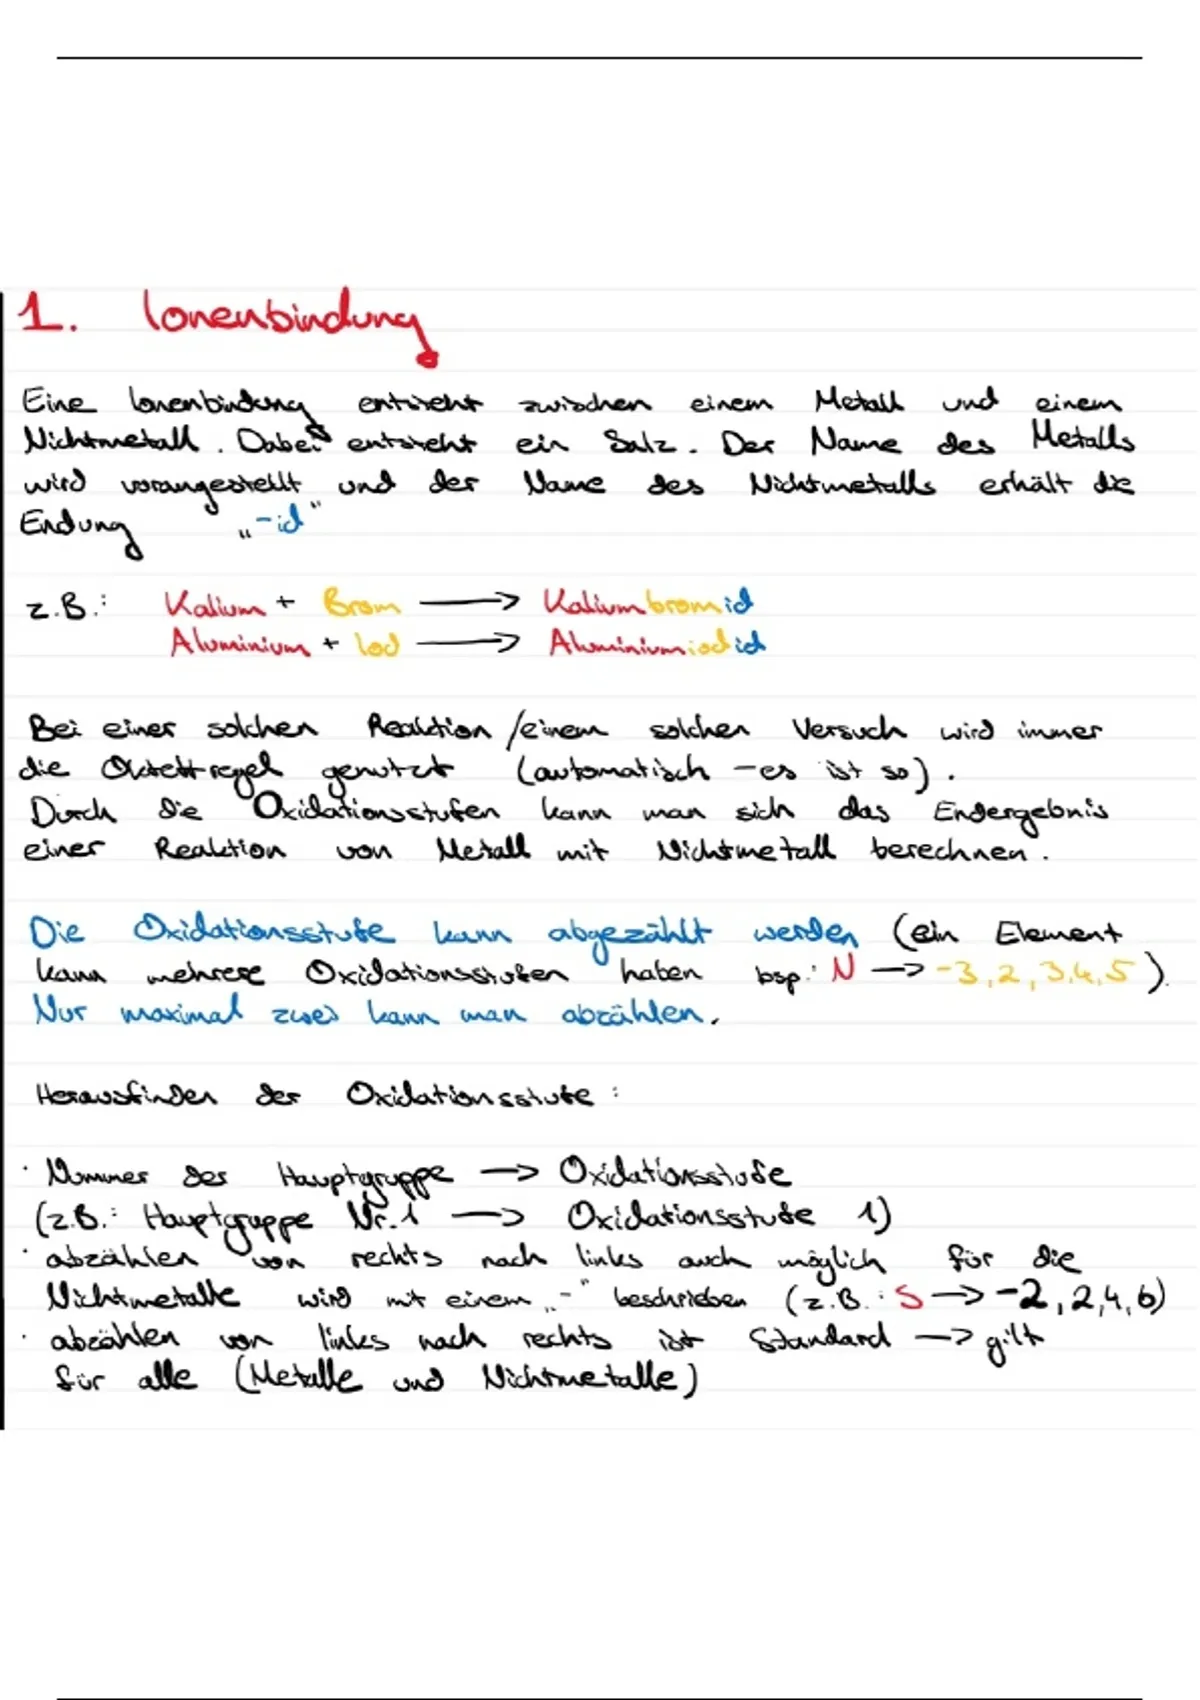 1. Ionenbindung
Eine Ionenbindung entsteht zwischen einem Metall und einem
Nichtmetall. Dabei entsteht ein Salz. Der Name des Metalls
wird vorangestellt und der Name des Nichtmetalls erhält die
Endung „-id“
z.B.: Kalium + Brom → Kaliumbromid
Aluminium + Iod → Aluminiumiodid
Bei einer solchen Reaktion / einem solchen Versuch wird immer
die Oktettregel genutzt (automatisch - es ist so).
Durch die Oxidationsstufen kann man sich das Endergebnis
einer Reaktion von Metall mit Nichtmetall berechnen.
Die Oxidationsstufe kann abgezählt werden (ein Element
kann mehrere Oxidationsstufen haben bsp.: N → -3, 2, 3, 4, 5).
Nur maximal zwei kann man abzählen.
Herausfinden der Oxidationsstufe:
· Nummer der Hauptgruppe → Oxidationsstufe
(z.B.: Hauptgruppe Nr. 1 → Oxidationsstufe 1)
· abzählen von rechts nach links auch möglich für die
Nichtmetalle wird mit einem „-“ beschrieben (z.B.: S → -2, 2, 4, 6)
· abzählen von links nach rechts ist Standard → gilt
für alle (Metalle und Nichtmetalle)